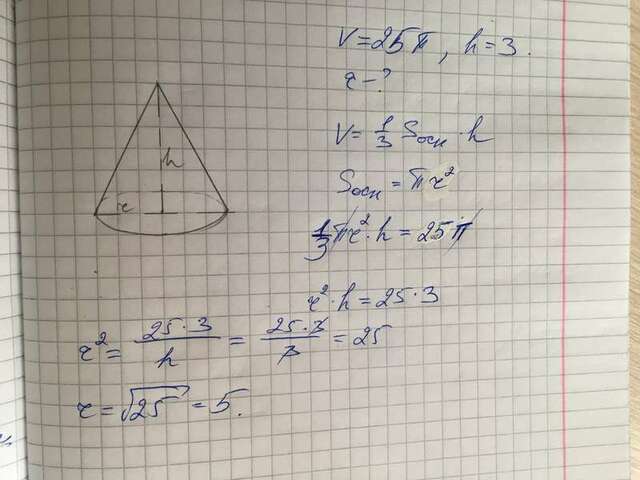 V=25π, h=3.
r-?
V=1/3 Sосн·h
Sосн=πr²
1/3πr²·h=25π
r²·h=25·3
r²=25·3/h=25·3/3=25
r=√25=5.
h
r